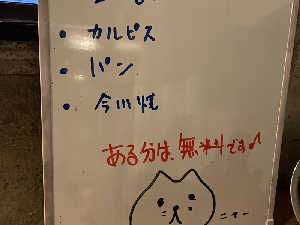 ・カルピス
・パン
・今川焼
ある分は、無料です♪
ニャー